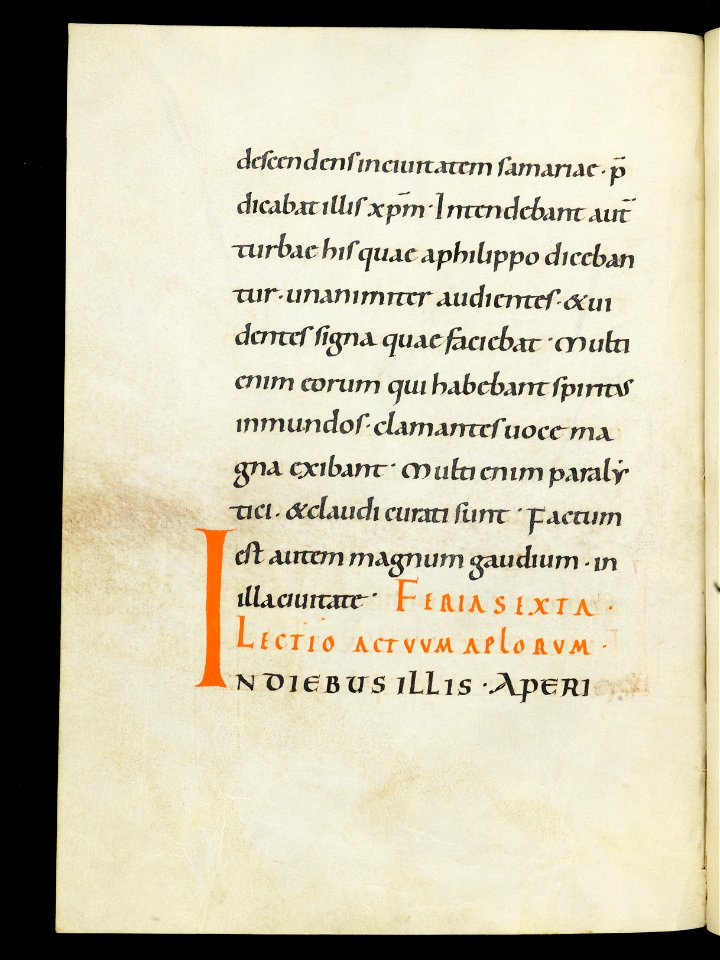 descendens inciuitatem samariae · p̄
dicabat illis xp̄m · Intendebant aut̄
turbae his quae aphilippo diceban
tur · unanimiter audientes · &ui
dentes signa quae faciebat · Multi
enim eorum qui habebant spiritus
inmundos · clamantes uoce ma
gna exibant · Multi enim paralẏ
tici · &claudi curati sunt · Factum
est autem magnum gaudium · in
illa ciuitate · FERIA SEXTA ·
LECTIO ACTUUM APLORUM ·
IN DIEBUS ILLIS · APERI